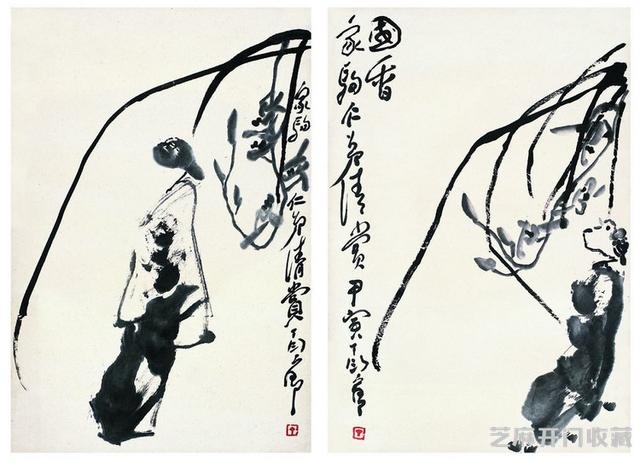 家駒仁弟清賞丁衍庸
國香
家駒仁弟清賞甲寅丁衍庸
芝麻开门收藏